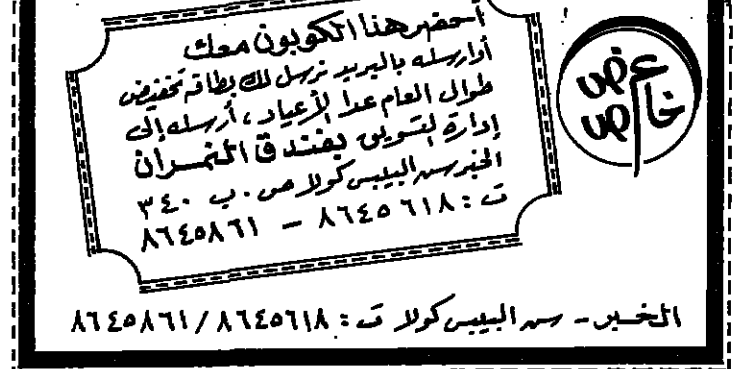 عرض
خاص
أحضر هذا الكوبون معك
أو ارسله بالبريد نرسل لك بطاقة تخفيض
طوال العام عدا الأعياد ، أرسله إلى
إدارة التسويق بفندق النمران
الخبر س البيبس كولا ص . ب ٣٤٠
ت : ٨٦٤٥٦١٨ – ٨٦٤٥٨٦١
الخبر - س البيبس كولا ت : ٨٦٤٥٦١٨ / ٨٦٤٥٨٦١